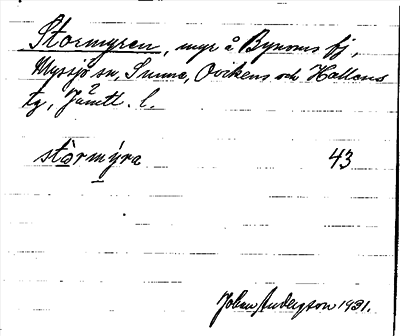 Stormyren, myr å Bynoms fj,
Myssjö sn, Sunne, Ovikens och Hallens
tg, Jämtl. l.
stòrmýra 43
Johan Anderzson 1931.